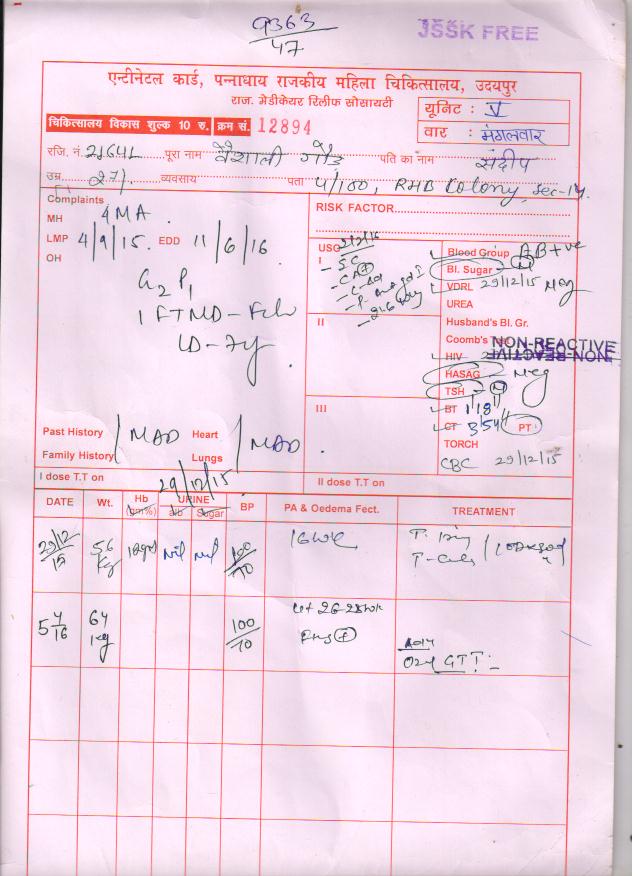 9363
47
JSSK FREE
एन्टीनेटल कार्ड, पन्नाधाय राजकीय महिला चिकित्सालय, उदयपुर
राज. मेडीकेयर रिलीफ सोसायटी
यूनिट : V
चिकित्सालय विकास शुल्क 10 रु. क्रम सं. 12894
वार : मंगलवार
रजि. नं. 21641 पूरा नाम वैशाली गौड़ पति का नाम संदीप
उम्र 27 व्यवसाय पता 4/100, RHB Colony, Sec-14.
Complaints
MH 4MA.
LMP 4/9/15. EDD 11/6/16
OH
G2P1
1 FTND-Fch
LD-7y
RISK FACTOR
USG
I
II
III
Blood Group AB+ve
Bl. Sugar - N
VDRL 29/12/15 Neg
UREA
Husband's Bl. Gr.
Coomb's
NON-REACTIVE
HIV
NON-REACTIVE
HASAG - Neg
TSH - N
BT 1'18"
CT 3'54" PT
TORCH
CBC 29/12/15
Past History NAD Heart NAD
Family History Lungs
I dose T.T on 29/12/15
II dose T.T on
DATE Wt. Hb (gm%) URINE alb Sugar BP PA & Oedema Fect. TREATMENT
29/12/15 56 kg Nil Nil 100/70 16wk
5/4/16 64 kg 100/70 26-28wk
FHS +
Adv
Oral GTT:-